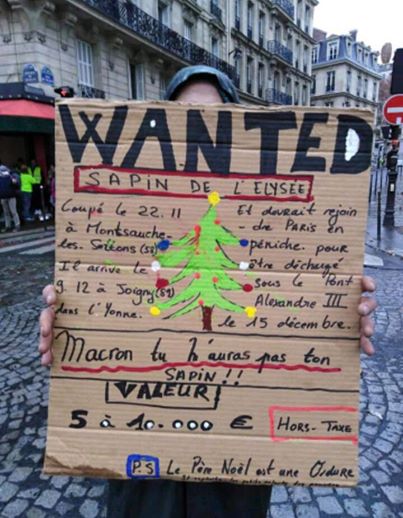 WANTED
SAPIN DE L'ELYSÉE
Coupé le 22.11
à Montsauche-
les. Settons (58)
Il arrive le
9.12 à Joigny(89)
dans l'Yonne.
Et devrait rejoin
-dre Paris en
péniche. pour
être déchargé
sous le Pont
Alexandre III
le 15 décembre.
Macron tu n'auras pas ton
SAPIN!!
VALEUR
5 à 10.000 €
HORS-TAXE
P.S Le Père Noël est une Ordure